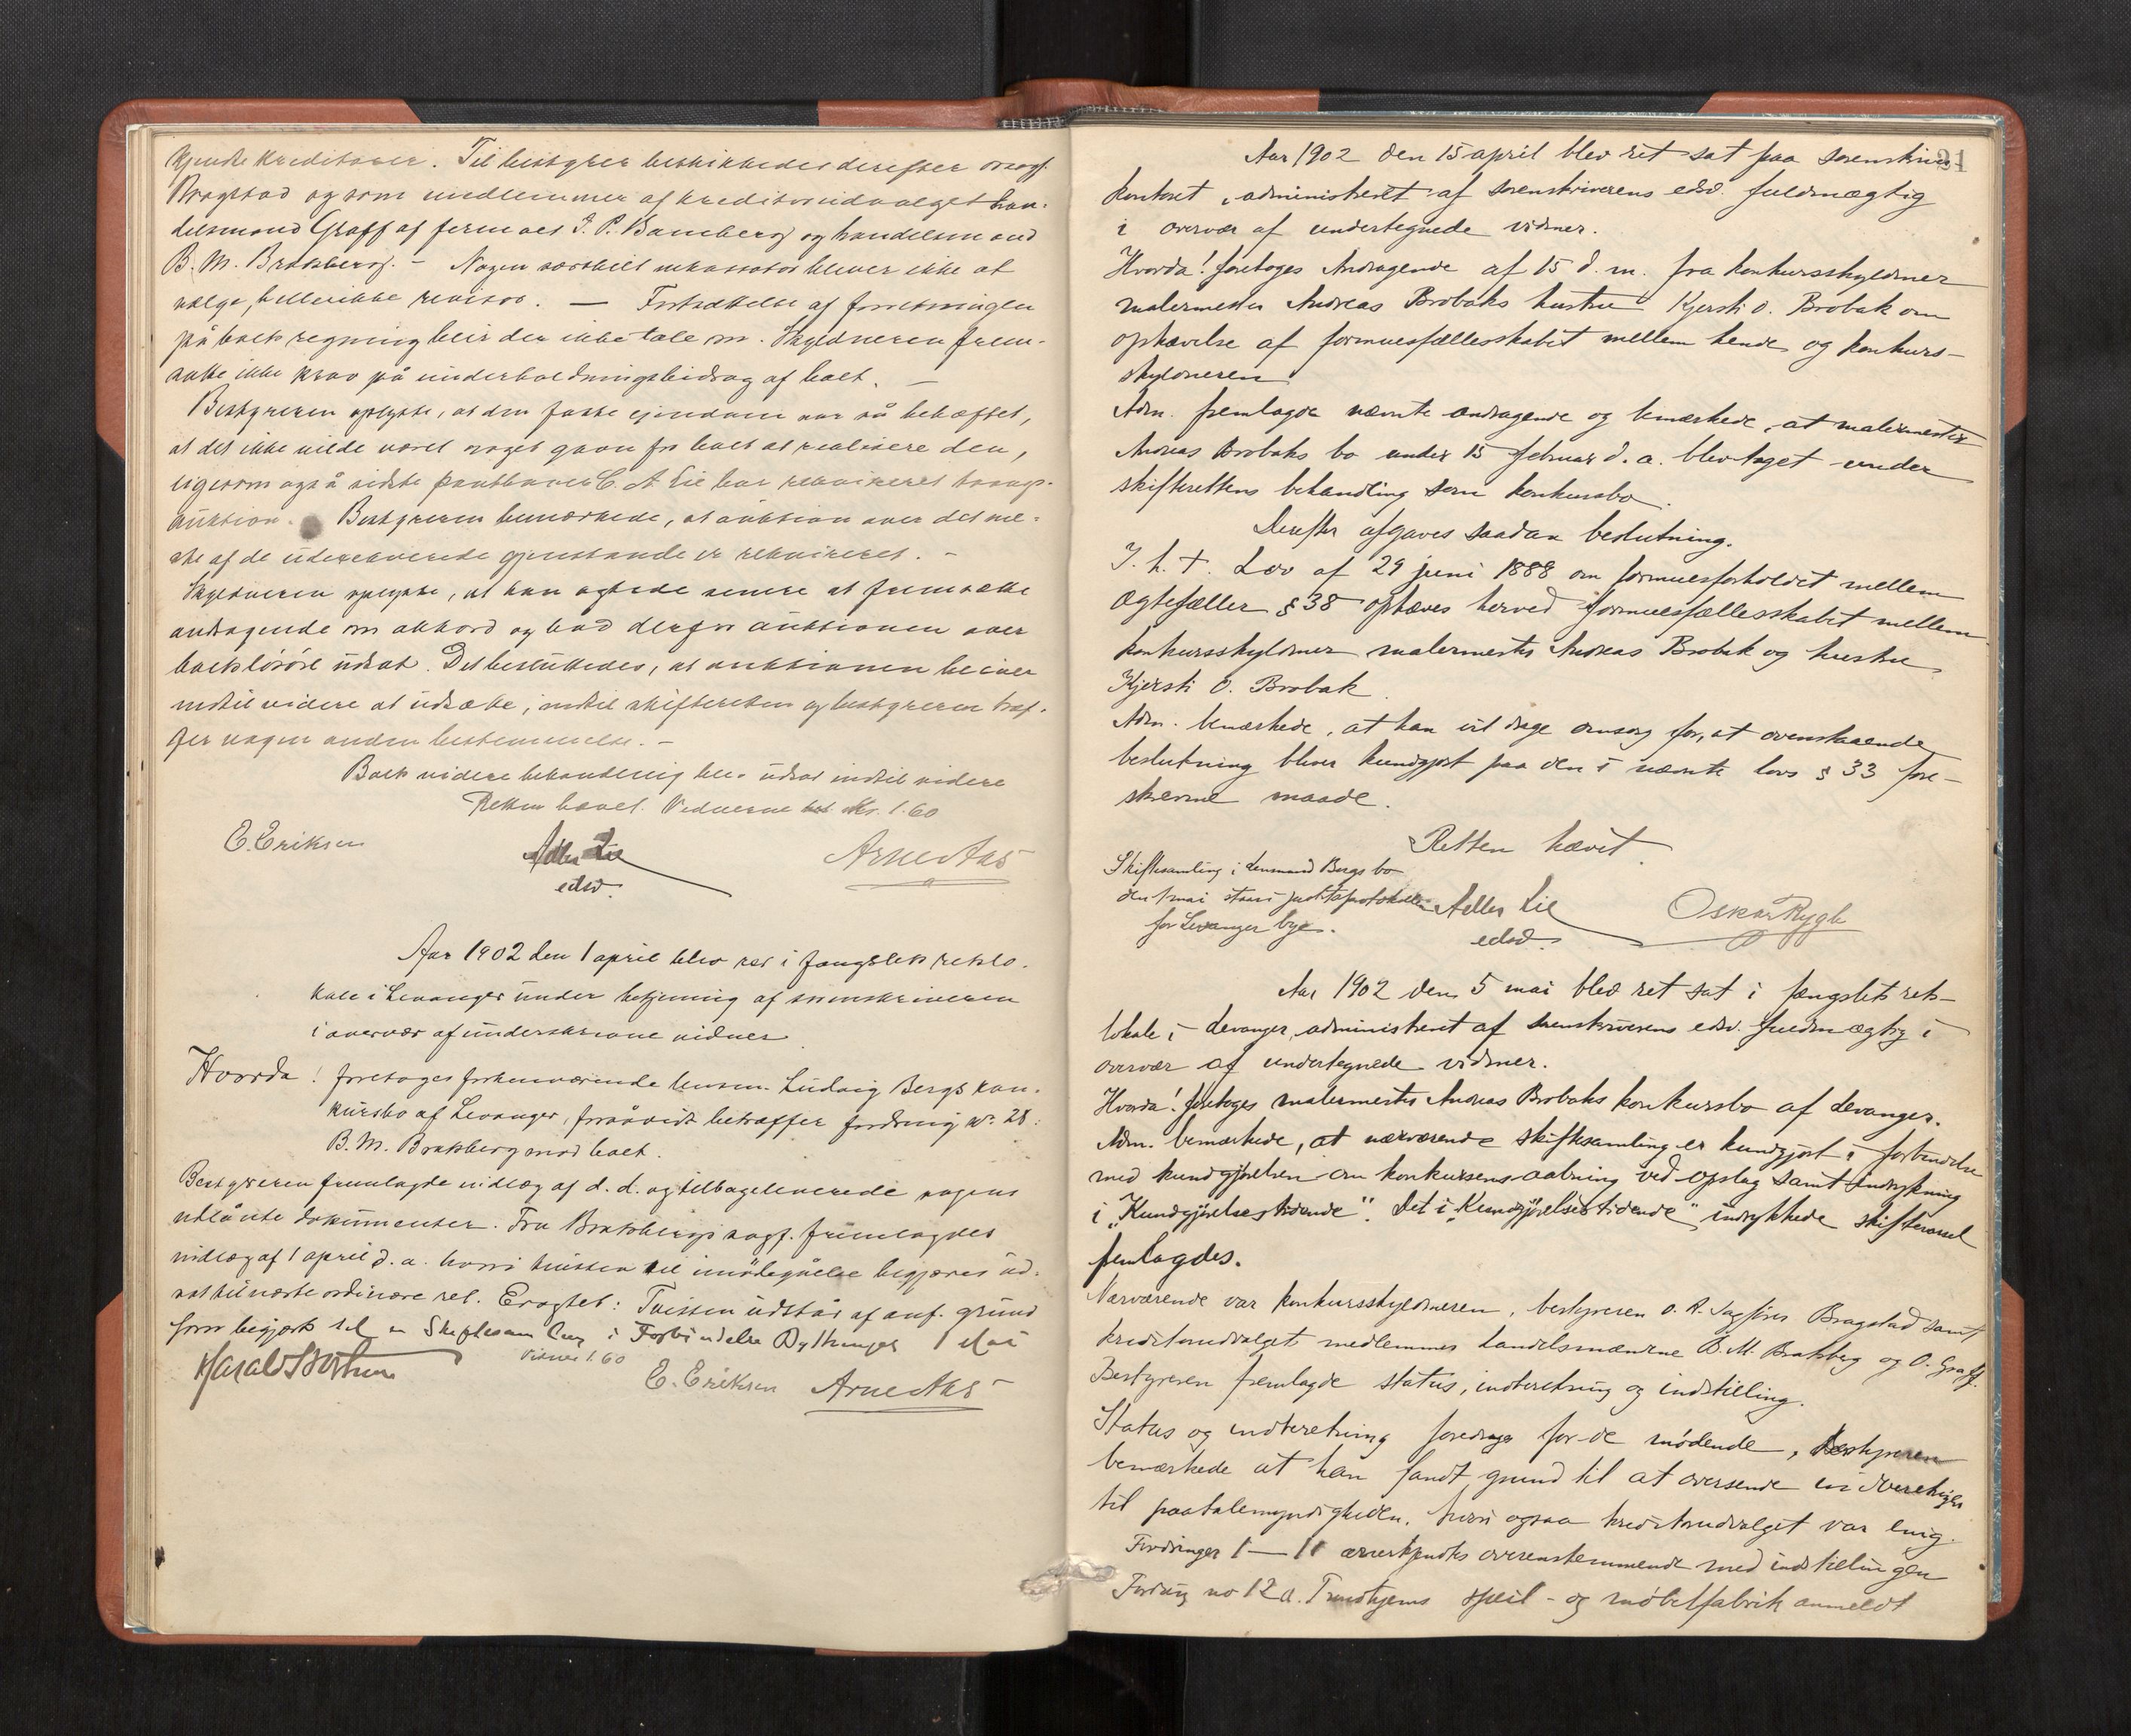 kjendte kreditorer. Til bestyrer beskikkedes derefter orsagf.
Bragstad og som medlemmer af kreditorudvalget han-
delsmand Graff af firmaet I. P. Bamberg og handelsmand
B. M. Bratsberg. – Nogen særskilt inkassator bliver ikke at
vælge, heller ikke revisor. — Fortsættelse af forretningen
på boets regning blir der ikke tale om. Skyldneren frem-
satte ikke krav på underholdningsbidrag af boet. –
Bestyreren oplyste, at den faste eiendom var så behæftet,
at det ikke vilde være noget gavn for boet at realisere den,
ligesom også sidste panthaver C. A. Lie har rekvireret tvangs-
auktion. Bestyreren bemærkede, at auktion over det me-
ste af de udexekverede gjenstande er rekvireret. –
Skyldneren oplyste, at han agtede senere at fremsætte
andragende om akkord og bad derfor auktionen over
boets løsøre udsat. Det besluttedes, at auktionen bliver
indtil videre at udsætte, indtil skifteretten og bestyreren træf-
fer nogen anden bestemmelse. –
Boets videre behandling blev udsat indtil videre
Retten hævet. Vidnerne bet. Kr. 1.60
E. Eriksen
Adler Lie
edsv.
Arne Aas
Aar 1902 den 1 april blev ret sat i fængslets retslo-
kale i Levanger under betjening af sorenskriveren
i overvær af underskrevne vidner
Hvorda! foretoges forhenværende lensm. Ludvig Bergs kon-
kursbo af Levanger, forsåvidt betræffer fordring No 28:
B. M. Bratsberg mod boet.
Bestyreren fremlagde indlæg af d. d. og tilbageleverede sagens
udlånte dokumenter. Fra Bratsbergs sagf. fremlagdes
indlæg af 1 april d. a. hvori tvisten til imødegåelse begjæres ud-
sat til næste ordinære ret. Eragtet: Tvisten udstår af anf. grund
som begjært til en Skiftesamling i Forbindelse 1 Mai
Vidner 1.60
E. Eriksen
Arne Aas
21
Aar 1902 den 15 april blev ret sat paa sorenskriver
kontoret, administreret af sorenskriverens edsv. fuldmægtig
i overvær af undertegnede vidner.
Hvorda! foretoges Andragende af 15 d. m. fra konkursskyldner
malermester Andreas Brobaks hustru Kjersti O. Brobak om
ophævelse af formuesfællesskabet mellem hende og konkurs-
skyldneren.
Adm. fremlagde nævnte andragende og bemærkede, at malermester
Andreas Brobaks bo under 15 februar d. a. blev taget under
skifterettens behandling som konkursbo.
Derefter afgaves saadan beslutning.
I. h. t. Lov af 29 juni 1888 om formuesforholdet mellem
Ægtefæller § 38 ophæves herved formuesfællesskabet mellem
konkursskyldner malermester Andreas Brobak og hustru
Kjersti O. Brobak.
Adm. bemærkede, at han vil drage omsorg for, at ovenstaaende
beslutning bliver kundgjort paa den i nævnte lovs § 33 fore-
skrevne maade.
Retten hævet.
Skiftesamling i lensmand Bergs bo
den 1 mai staar i justitsprotokollen
for Levanger by.
Adler Lie
edsv.
Oskar Rygh
Aar 1902 den 5 mai blev ret sat i fængslets rets-
lokale i Levanger, administreret af sorenskriverens edsv. fuldmægtig i
overvær af undertegnede vidner.
Hvorda! foretoges malermester Andreas Brobaks konkursbo af Levanger.
Adm. bemærkede, at nærværende skiftesamling er kundgjort i forbindelse
med kundgjørelsen om konkursens aabning ved opslag samt indrykning
i „Kundgjørelsestidende". Det i „Kundgjørelsestidende" indrykkede skiftevarsel
fremlagdes.
Nærværende var konkursskyldneren, bestyreren o. r. sagfører Bragstad samt
kreditorudvalgets medlemmer handelsmændene B. M. Bratsberg og O. Graff.
Bestyreren fremlagde status, indberetning og indstilling.
Status og indberetning foredroges for de mødende, Bestyreren
bemærkede at han fandt grund til at oversende indberetningen
til paatalemyndigheden, hvori ogsaa kreditorudvalget var enig.
Fordringer 1 — 11 anerkjendtes overensstemmende med indstillingen
Fordring no 12 a. Trondhjems speil- og møbelfabrik anmeldt